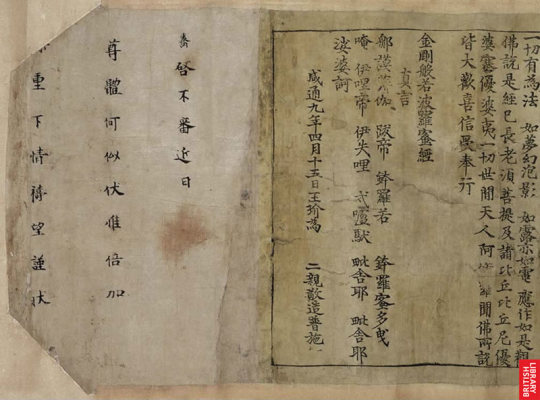 一切有為法 如夢幻泡影 如露亦如電 應作如是觀
佛說是經已長老須菩提及諸比丘比丘尼優
婆塞優婆夷一切世間天人阿 羅聞佛所說
皆大歡喜信受奉行
金剛般若波羅蜜經
真言
那謨 伽 跋帝 鉢羅若 鉢羅蜜多曳
唵 伊哩帝 伊失哩 戍嚧馱 毗舍耶 毗舍耶
娑婆訶
咸通九年四月十三日王玠為 二親敬造普施
啓不番近日
尊體何似伏惟倍加
重下情禱望謹狀
BRITISH
LIBRARY